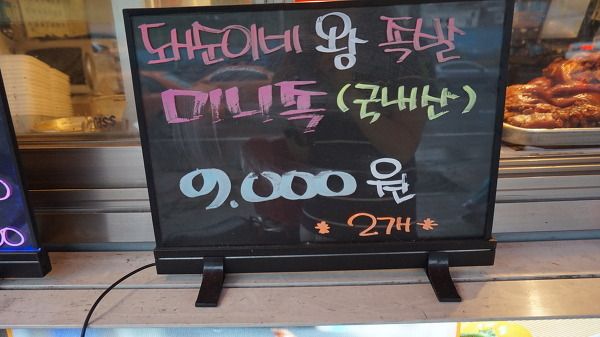 돼순이네 왕 족발
미니족 (국내산)
9.000 원
* 2개 *